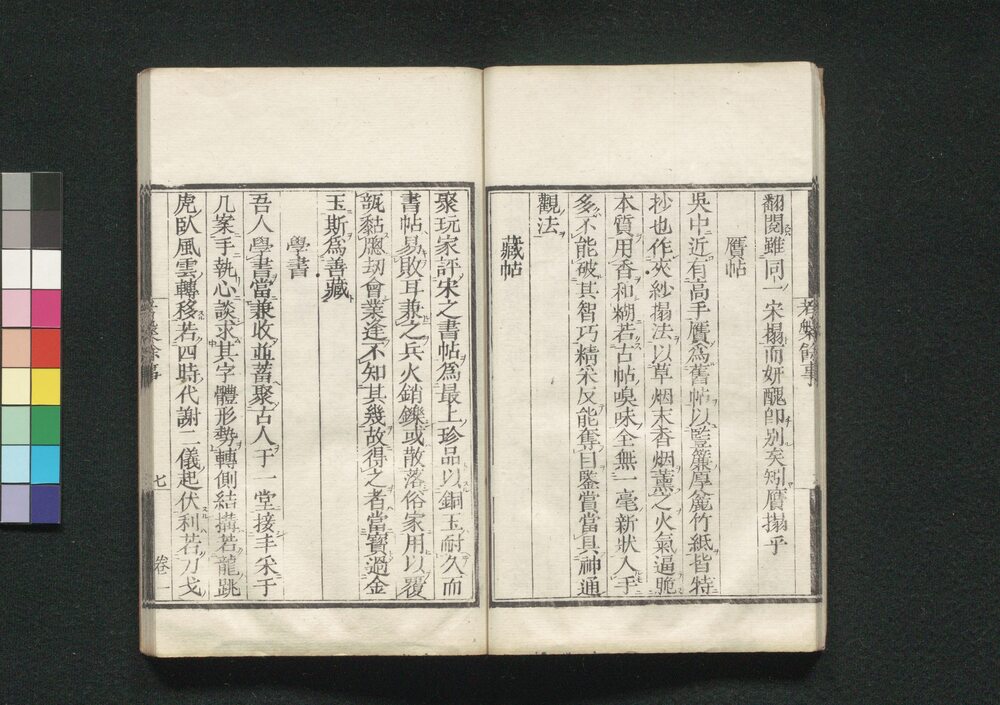 翻閱雖同一宋搨而妍醜卽别矣矧贋搨乎
贋帖
吳中近有高手贋爲舊帖以竪簾厚麄竹紙皆特
抄也作夾紗搨法以草烟末香烟薰之火氣逼脆
本質用香和糊若古帖嗅味全無一毫新狀入手
多不能破其智巧精采反能奪目鑒賞當具神通
觀法
藏帖
聚玩家評宋之書帖爲最上珍品以銅玉耐久而
書帖易敗耳兼之兵火銷鑠或散落俗家用以覆
瓿黏牕刼會業逢不知其幾故得之者當寶過金
玉斯爲善藏
學書
吾人學書當兼收並蓄聚古人于一堂接丰采于
几案手執心談求其字體形勢轉側結搆若龍跳
虎臥風雲轉移若四時代謝二儀起伏利若刀戈
考槃餘事
七
卷一